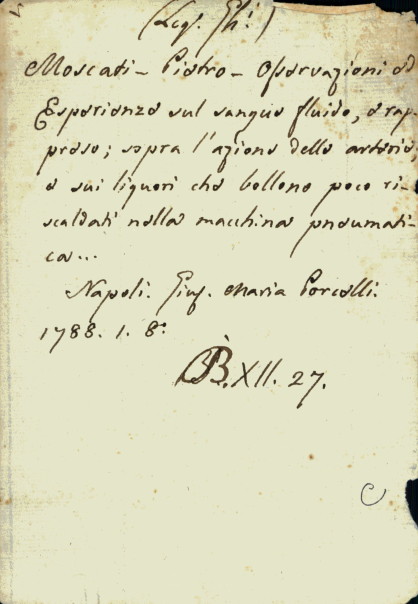 (Leg. Ghi)
Moscati - Pietro - Osservazioni ed
Esperienze sul sangue fluido, e rap-
preso; sopra l'azione delle arterie,
e sui liquori che bollono poco ri-
scaldati nella macchina pneumati-
ca...
Napoli. Gius. Maria Porcelli.
1788. 1. 8°
B. XII. 27.
C